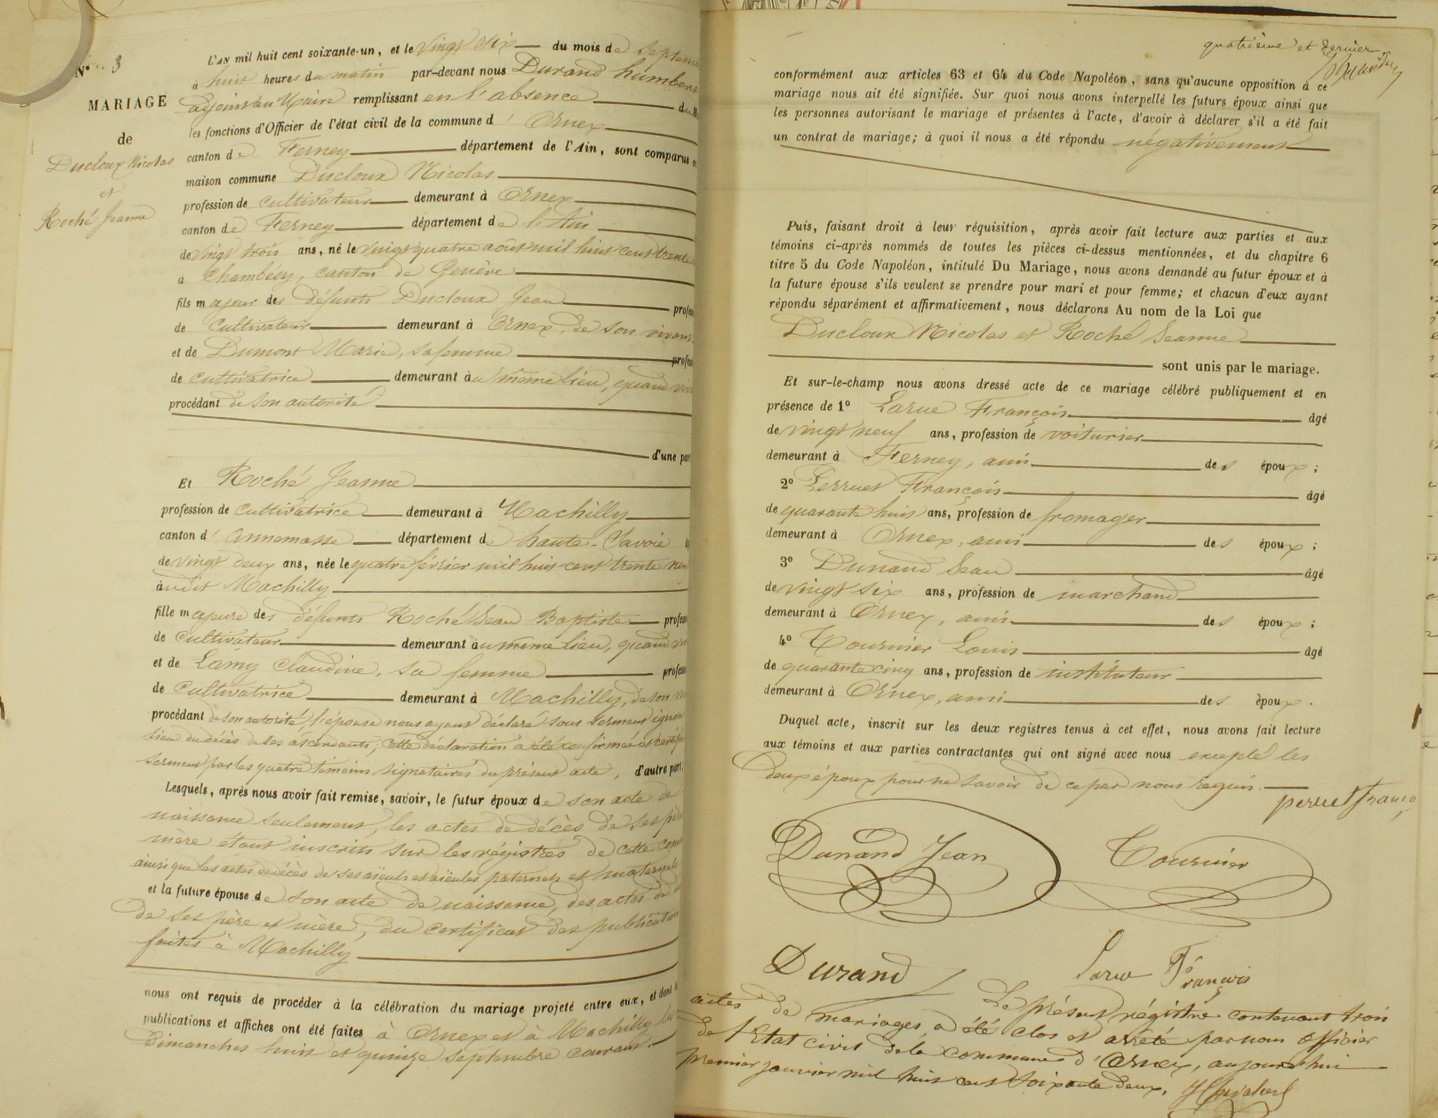 N° 3
MARIAGE
de
Ducloux Nicolas
et
Roché Jeanne
L'AN mil huit cent soixante-un, et le vingt six du mois de Septem
à huit heures du matin par-devant nous Durand humbert
adjoint au Maire remplissant en l'absence du M
les fonctions d'Officier de l'état civil de la commune d' Ornex
canton de Ferney département de l'Ain, sont comparus en
maison commune Ducloux Nicolas
profession de cultivateur demeurant à Ornex
canton de Ferney département de l'Ain
de vingt trois ans, né le vingt quatre août mil huit cent trente
à Chambésy, canton de Genève
fils majeur des défunts Ducloux Jean profes
de Cultivateur demeurant à Ornex, de son vivant
et de Dumont Marie, sa femme profes
de cultivatrice demeurant au même lieu, quand viv
procédant de son autorité
d'une par
Et Roché Jeanne
profession de Cultivatrice demeurant à Machilly
canton d' Annemasse département de haute-Savoie
de vingt deux ans, née le quatre février mil huit cent trente neu
àudit Machilly
fille majeure des défunts Roché Jean Baptiste profes
de Cultivateur demeurant au même lieu, quand
et de Lamy Claudine, sa femme profes
de Cultivatrice demeurant à Machilly, de son
procédant de son autorité, l'épouse nous ayant déclaré sous serment ignorer
lieu du décès de ses ascendants, cette déclaration a été confirmée et certif
serment par les quatre témoins signataires du présent acte, d'autre part.
Lesquels, après nous avoir fait remise, savoir, le futur époux de son acte de
naissance seulement, les actes de décès de ses père
mère étant inscrits sur les régistres de cette com
ainsi que les actes de décès de ses aïeuls et aïeules paternels et maternels
et la future épouse de son acte de naissance, des actes de d
de ses père et mère, du certificat des publication
faites à Machilly
nous ont requis de procéder à la célébration du mariage projeté entre eux, et dont l
publications et affiches ont été faites à Ornex et à Machilly les
Dimanches huit et quinze Septembre courant.
quatrième et dernier
conformément aux articles 63 et 64 du Code Napoléon, sans qu'aucune opposition à ce
mariage nous ait été signifiée. Sur quoi nous avons interpellé les futurs époux ainsi que
les personnes autorisant le mariage et présentes à l'acte, d'avoir à déclarer s'il a été fait
un contrat de mariage; à quoi il nous a été répondu négativement
Puis, faisant droit à leur réquisition, après avoir fait lecture aux parties et aux
témoins ci-après nommés de toutes les pièces ci-dessus mentionnées, et du chapitre 6
titre 5 du Code Napoléon, intitulé Du Mariage, nous avons demandé au futur époux et à
la future épouse s'ils veulent se prendre pour mari et pour femme; et chacun d'eux ayant
répondu séparément et affirmativement, nous déclarons Au nom de la Loi que
Ducloux Nicolas et Roché Jeanne
sont unis par le mariage.
Et sur-le-champ nous avons dressé acte de ce mariage célébré publiquement et en
présence de 1° Larue François âgé
de vingt neuf ans, profession de voiturier
demeurant à Ferney, ami des époux;
2° Perruet François âgé
de quarante huit ans, profession de fromager
demeurant à Ornex, ami des époux;
3° Dunand Jean âgé
de vingt six ans, profession de marchand
demeurant à Ornex, ami des époux;
4° Tournier Louis âgé
de quarante cinq ans, profession de instituteur
demeurant à Ornex, ami des époux.
Duquel acte, inscrit sur les deux registres tenus à cet effet, nous avons fait lecture
aux témoins et aux parties contractantes qui ont signé avec nous excepté les
deux époux pour ne savoir de ce par nous requis.
perruet franço
Dunand Jean Tournier
Durand Larue François
Le présent régistre contenant trois
actes de mariages, a été clos et arrêté par nous Officier
de l'Etat civil de la commune d'Ornex, aujourd'hui
premier janvier mil huit cent soixante deux.